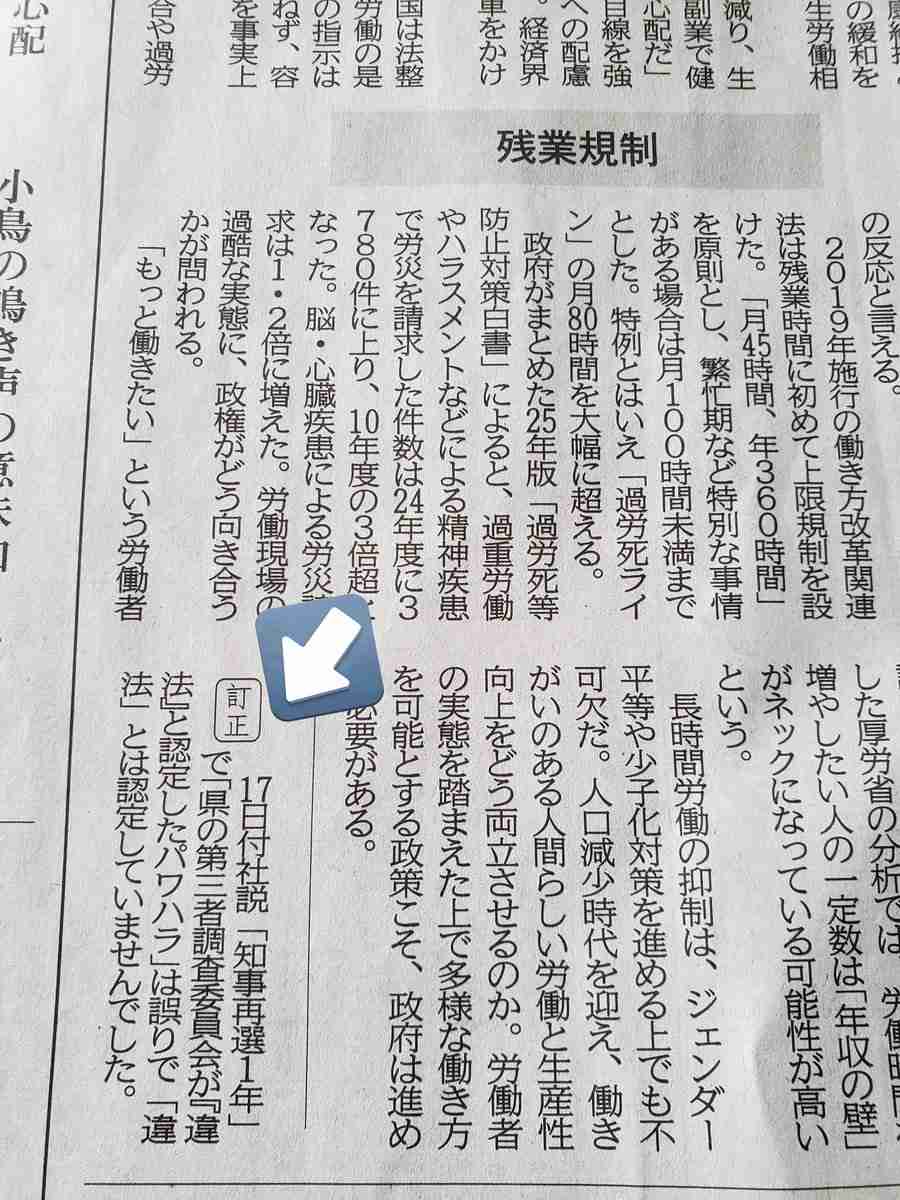 の緩和を
生労働相
減り、生
副業で健
心配だ」
目線を強
への配慮
。経済界
車をかけ
国は法整
労働の是
の指示は
ねず、容
を事実上
合や過労
残業規制
の反応と言える。
2019年施行の働き方改革関連
法は残業時間に初めて上限規制を設
けた。「月45時間、年360時間」
を原則とし、繁忙期など特別な事情
がある場合は月100時間未満まで
とした。特例とはいえ「過労死ライ
ン」の月80時間を大幅に超える。
政府がまとめた25年版「過労死等
防止対策白書」によると、過重労働
やハラスメントなどによる精神疾患
で労災を請求した件数は24年度に3
780件に上り、10年度の3倍超と
なった。脳・心臓疾患による労災請
求は1・2倍に増えた。労働現場の
過酷な実態に、政権がどう向き合う
かが問われる。
「もっと働きたい」という労働者
した厚労省の分析では、労働時間を
増やしたい人の一定数は「年収の壁」
がネックになっている可能性が高い
という。
長時間労働の抑制は、ジェンダー
平等や少子化対策を進める上でも不
可欠だ。人口減少時代を迎え、働き
がいのある人間らしい労働と生産性
向上をどう両立させるのか。労働者
の実態を踏まえた上で多様な働き方
を可能とする政策こそ、政府は進め
必要がある。
訂正
17日付社説「知事再選1年」
で「県の第三者調査委員会が『違
法』と認定したパワハラ」は誤りで「違
法」とは認定していませんでした。
心配
小鳥の鳴き声の意味